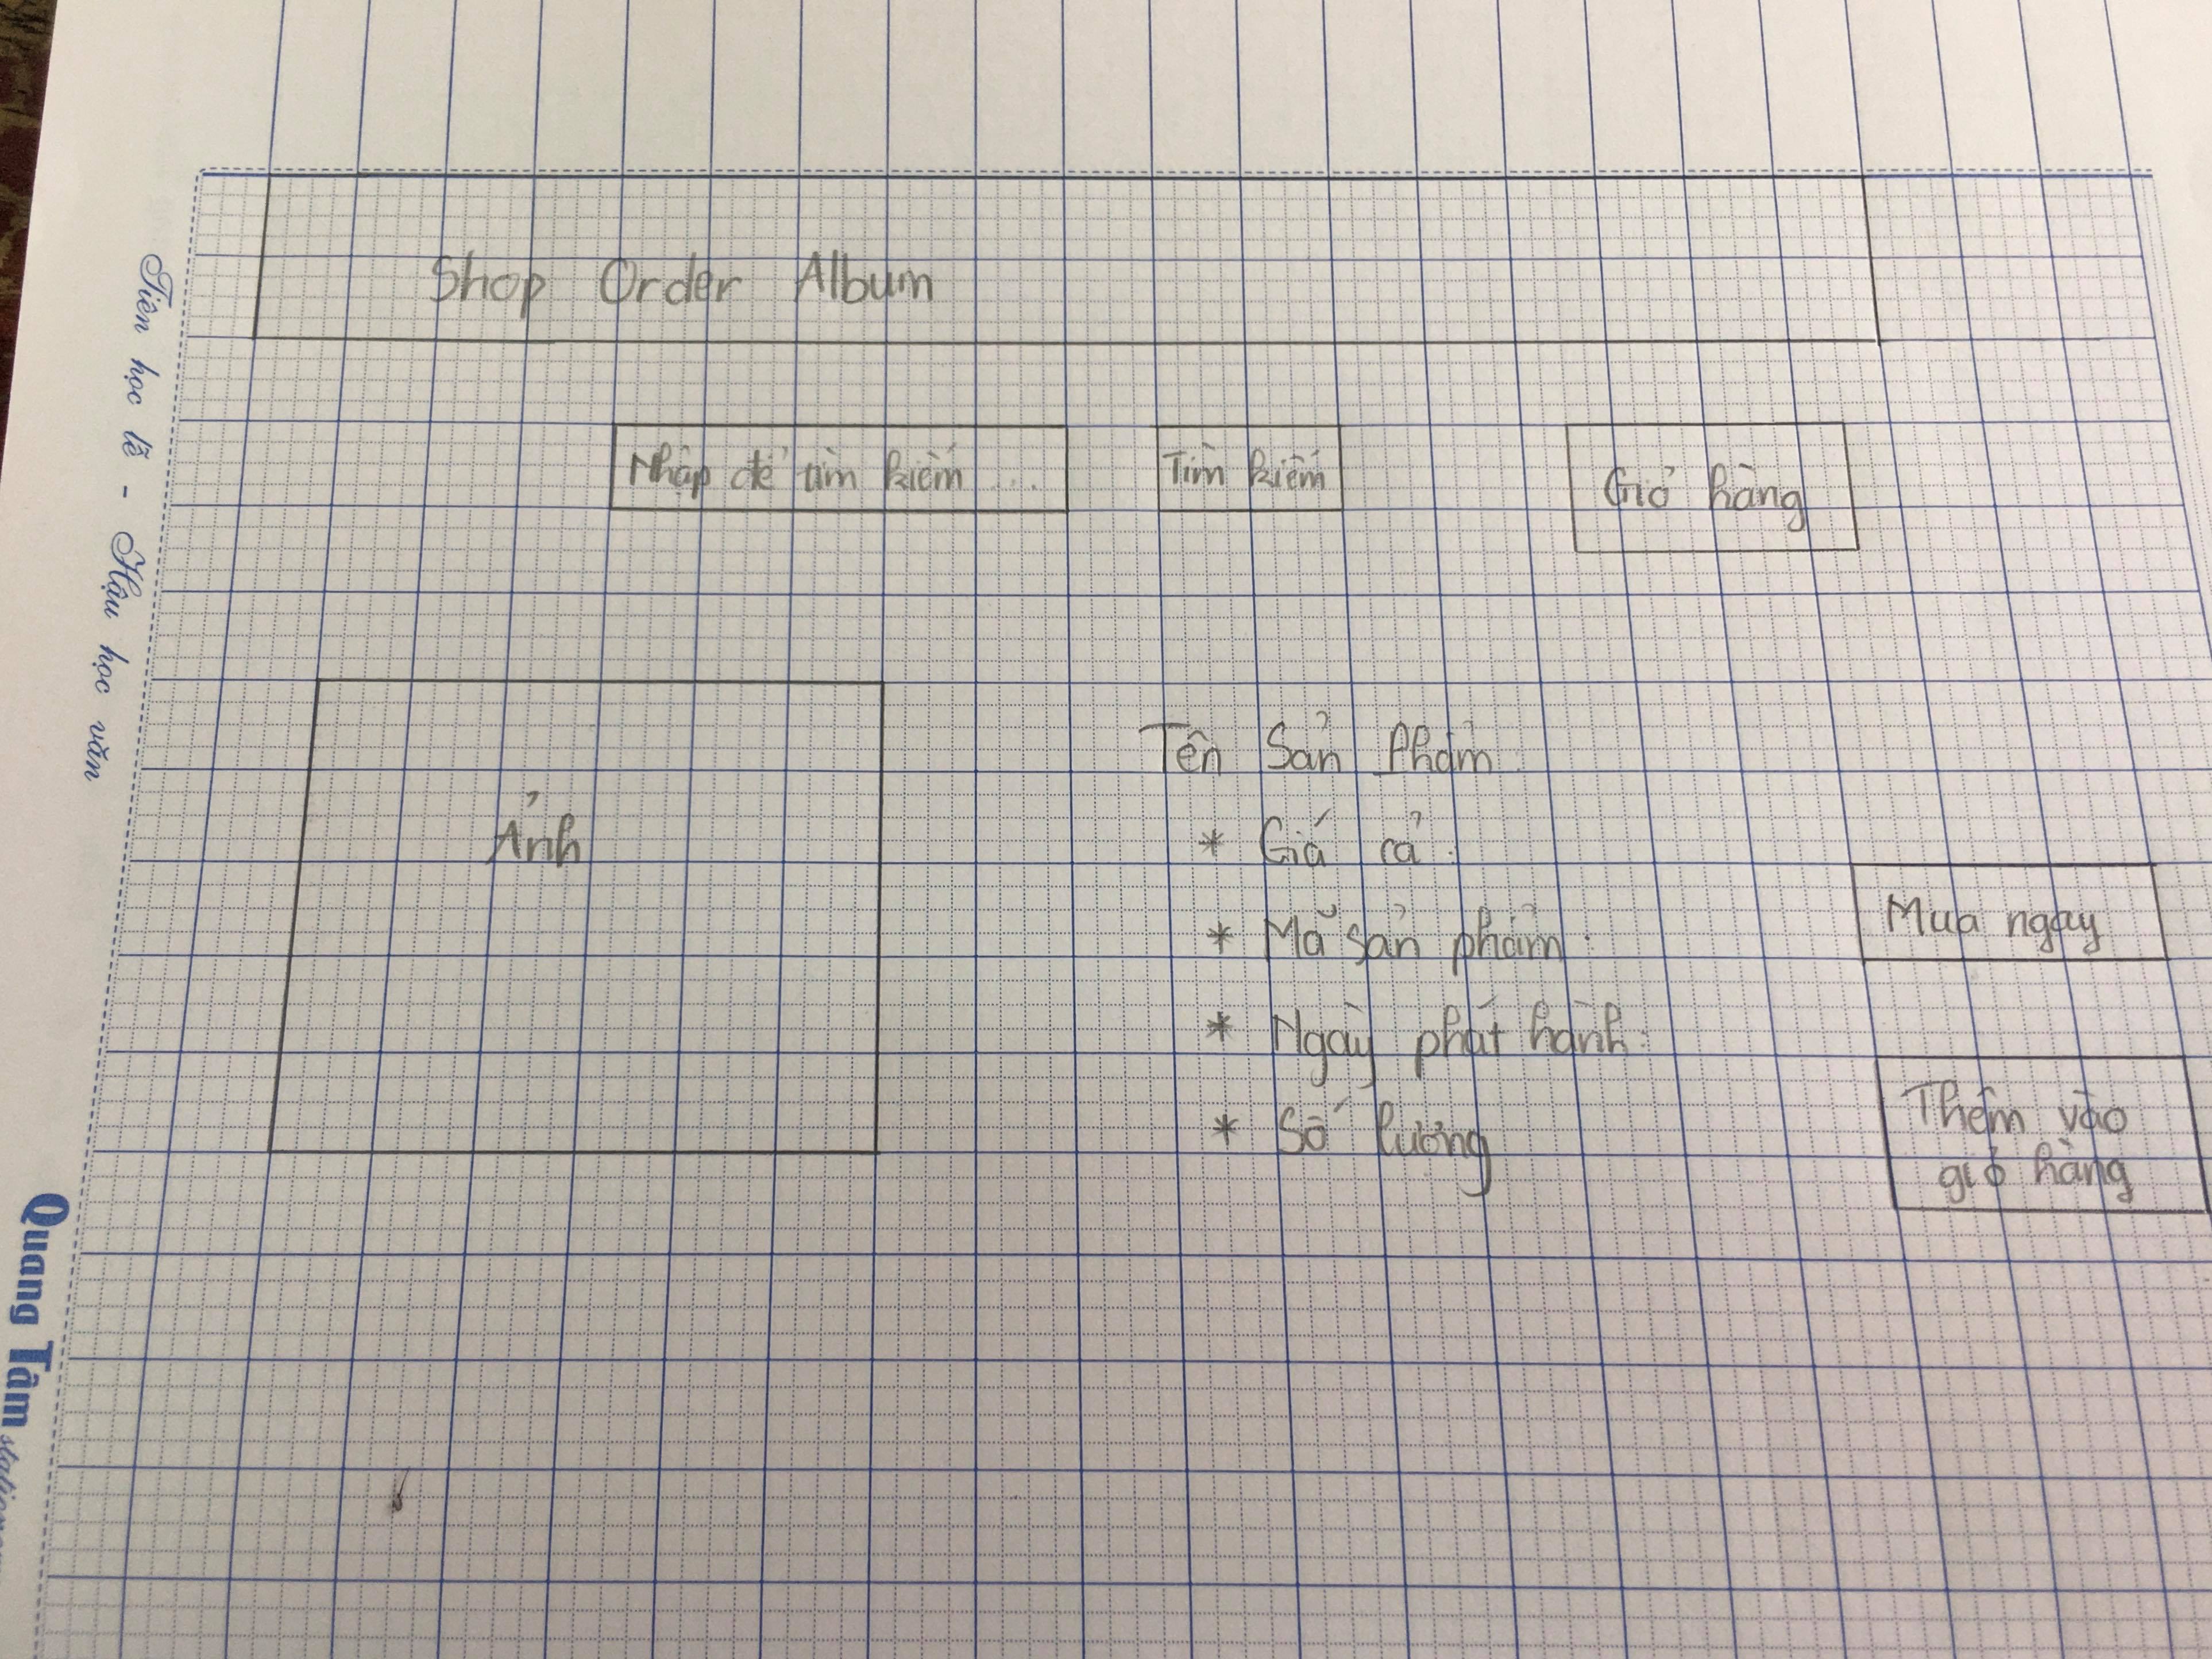 Shop Order Album
Nhập để tìm kiếm ...
Tìm kiếm
Giỏ hàng
Ảnh
Tên Sản Phẩm
* Giá cả :
* Mã sản phẩm :
* Ngày phát hành :
* Số lượng
Mua ngay
Thêm vào
giỏ hàng
Tiên học lễ - Hậu học văn
Quang Tâm